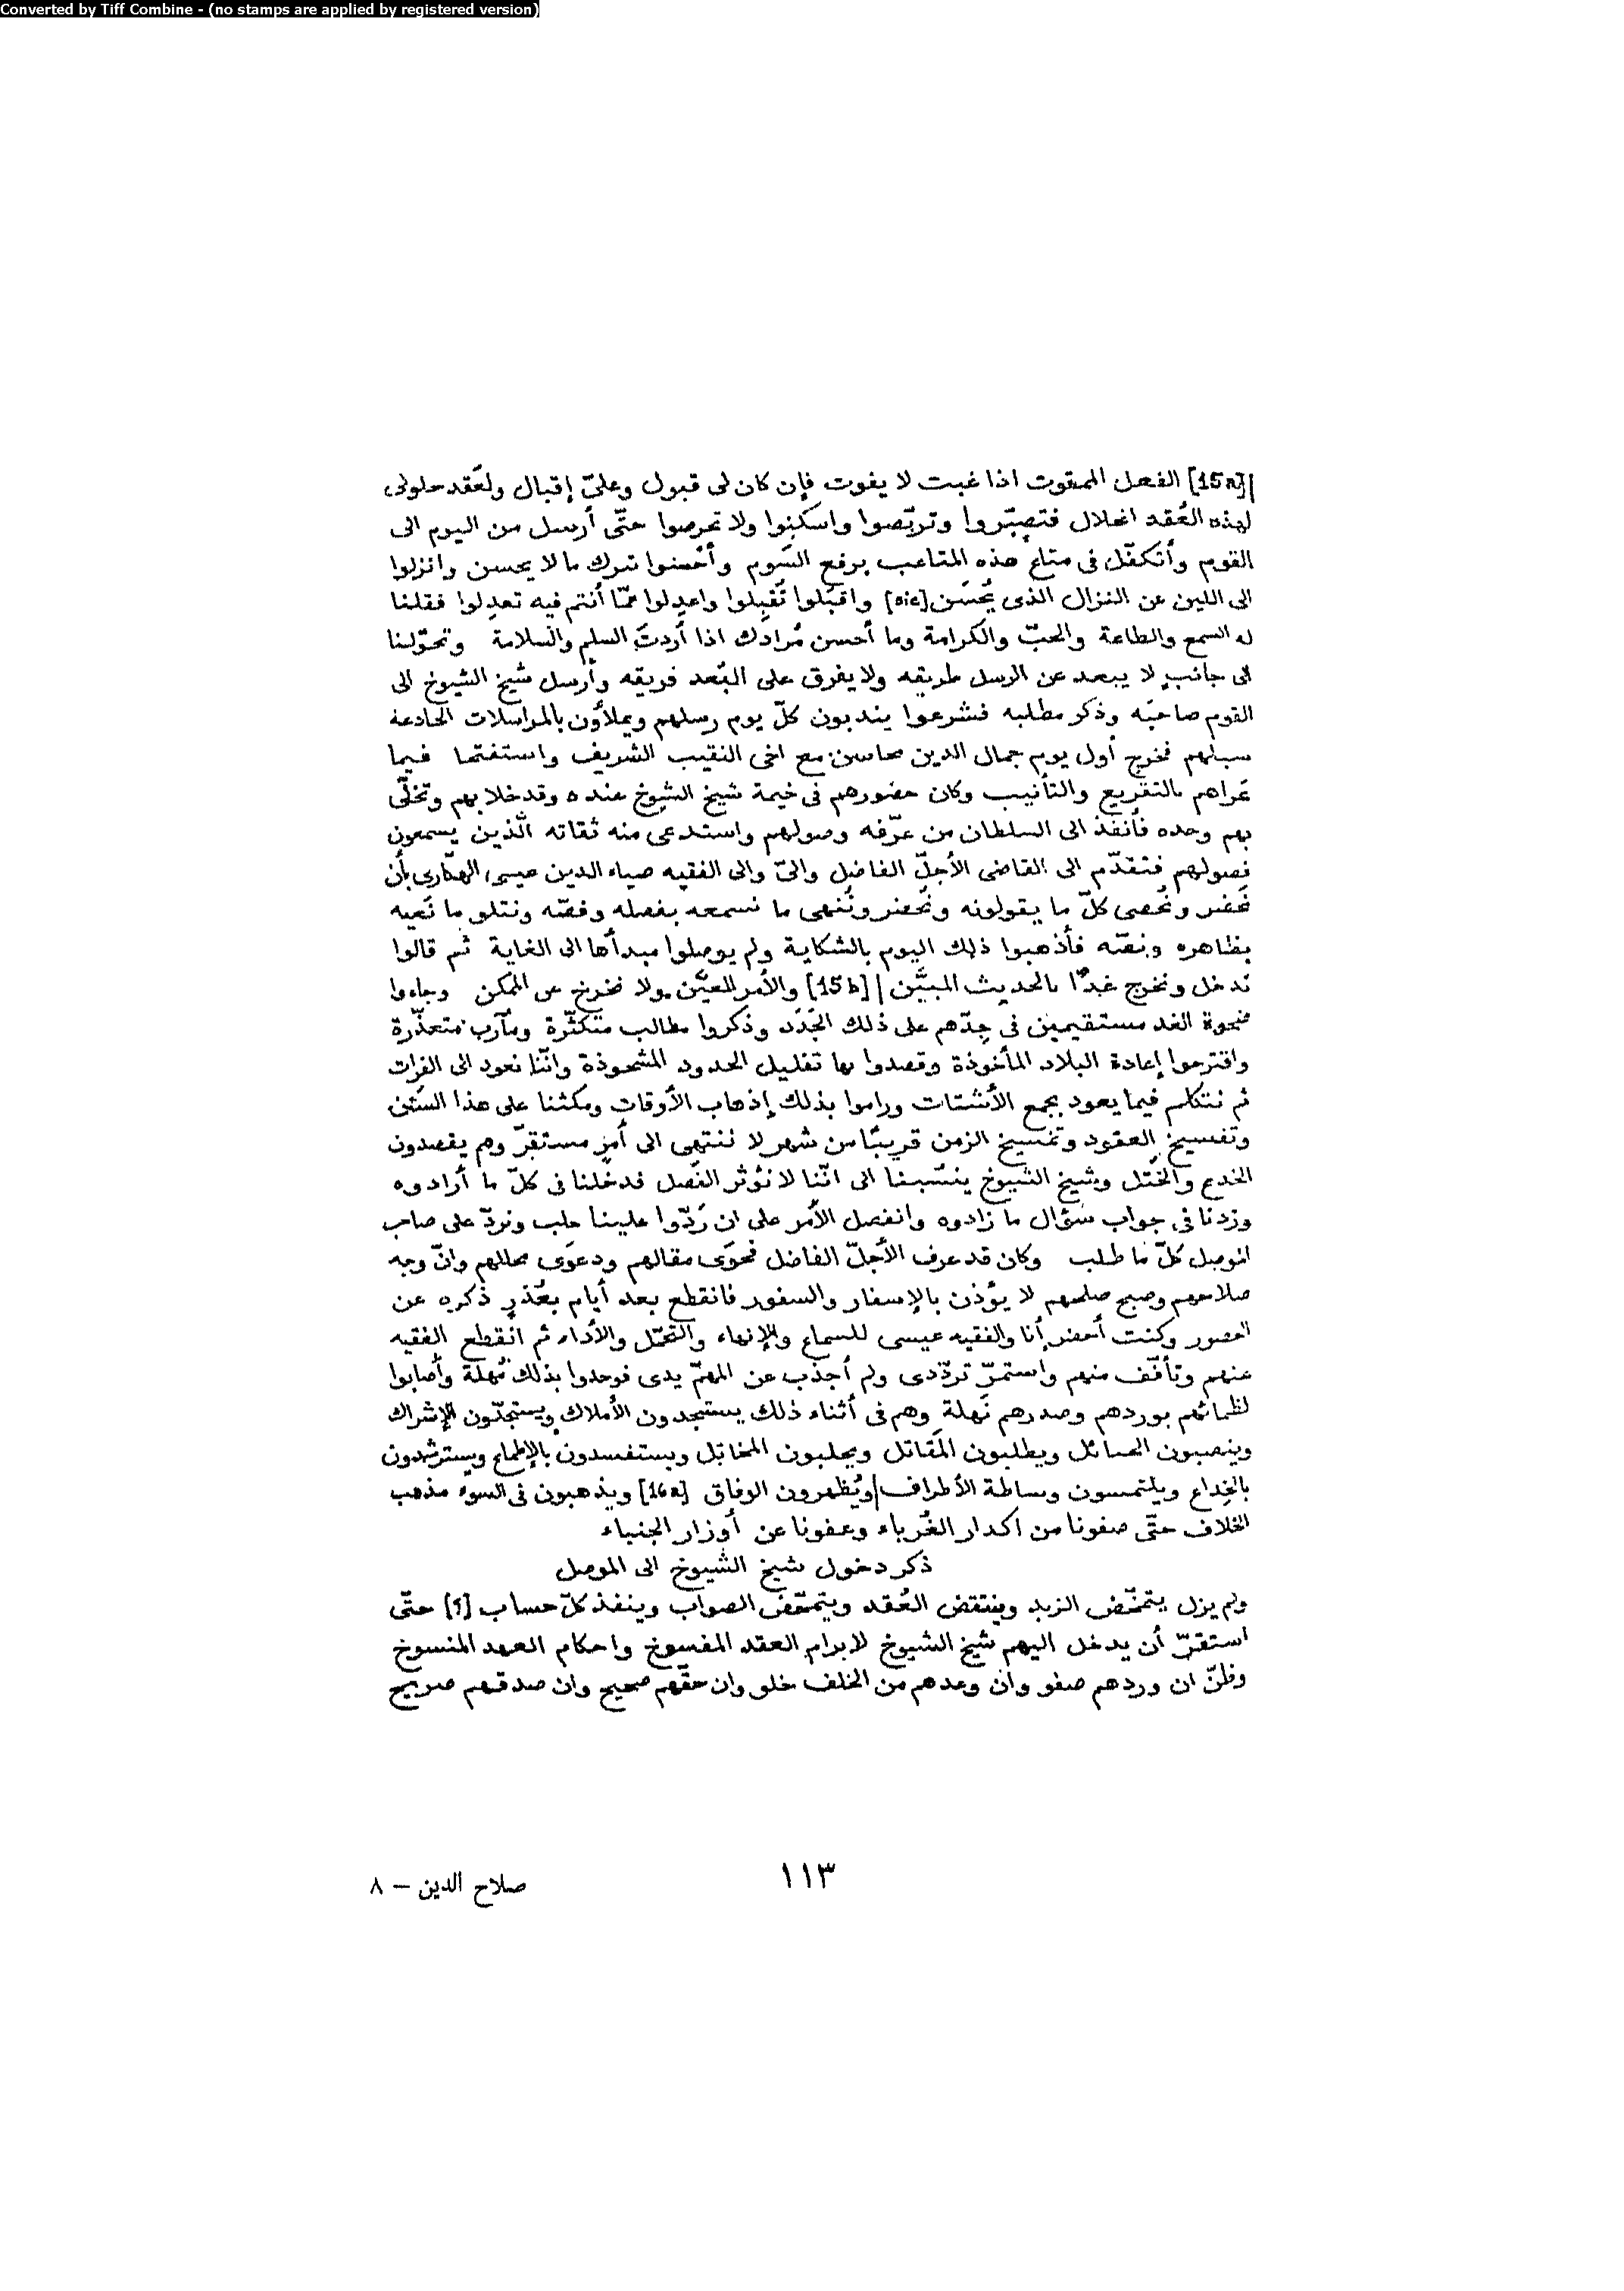 Converted by Tiff Combine - (no stamps are applied by registered version)
|[15a] الفعل الممقوت اذا غبت لا يفوت فإن كان لى قبول وعلىّ إقبال ولعَقد حلولى
لهذه العُقد انحلال فتصبّروا وتربّصوا واسكنوا ولا تحرصوا حتّى أرسل من اليوم الى
القوم وأتكفّل فى متاع هذه المتاعب برفع السَوم وأحْسنوا بترك ما لا يحسن وانزلوا
الى اللين عن النزال الذى يُحسَن [sic] واقبَلوا تُقبِلوا واعدِلوا عمّا أنتم فيه تعدِلوا فقلنا
له السمع والطاعة والحبّ والكرامة وما أحسن مُرادك اذا أردتَ السلم والسلامة وتحوّلنا
الى جانبٍ لا يبعد عن الرسل طريقه ولا يفرق على البُعد فريقه وأرسل شيخ الشيوخ الى
القوم صاحبَه وذكر مطلبه فشرعوا يندبون كلّ يوم رسلهم ويملأون بالمراسلات الخادعة
سبلهم فخرج أول يوم جمال الدين محاسن مع اخى النقيب الشريف واستفتحا فيما
عراهم بالتقريع والتأنيب وكان حضورهم فى خيمة شيخ الشيوخ عنده وقد خلا بهم وتخلّى
بهم وحده فأنفذ الى السلطان من عرّفه وصولهم واستدعى منه ثقاته الّذين يسمعون
فصولهم فتقدّم الى القاضى الأجلّ الفاضل والىّ والى الفقيه ضياء الدين عيسى الهكّارى بأن
نحضر ونُحصى كلّ ما يقولونه ونحضر ونُنهى ما نسمعه بفصله وفصّه ونتلو ما نَعيه
بظاهره ونصّه فأذهبوا ذلك اليوم بالشكاية ولم يوصلوا مبدأها الى الغاية ثم قالوا
ندخل ونخرج غدًا بالحديث المبيَّن |[15b] والأمر المعيَّن ولا نخرج عن الممكن وجاءوا
ضحوة الغد مستقيمين فى جِدّهم على ذلك الجَدَد وذكروا مطالب متكثّرة ومآرب متعذّرة
واقترحوا إعادة البلاد المأخوذة وقصدوا بها تفليل الحدود المشحوذة وانّنا نعود الى الفرات
ثم نتكلم فيما يعود بجمع الأشتات وراموا بذلك إذهاب الأوقات ومكثنا على هذا السَنَن
وتفسيخ العقود وتفسيخ الزمن قريبًا من شهر لا ننتهى الى أمرٍ مستقرّ وهم يقصدون
الخدع والخَتل وشيخ الشيوخ ينسُبنا الى انّنا لا نؤثر الفَصل فدخلنا فى كلّ ما أرادوه
وزدنا فى جواب سؤال ما زادوه وانفصل الأمر على ان رَدّوا علينا حلب ونردّ على صاحب
الموصل كلّ ما طلب وكان قد عرف الأجلّ الفاضل فحوَى مقالهم ودعوَى محالهم وانّ وجه
صلاحهم وصبح صلحهم لا يؤذن بالإسفار والسفور فانقطع بعد أيام بعُذرٍ ذكره عن
الحضور وكنت أحضر أنا والفقيه عيسى للسماع والإنهاء والتحمّل والأداء ثم انقطع الفقيه
عنهم وتأفّف منهم واستمرّ تردّدى ولم أجذب عن المهمّ يدى فوجدوا بذلك مُهلة وأصابوا
لظمائهم بوردهم وصدرهم نَهلة وهم فى أثناء ذلك يستنجدون الأملاك ويستجدّون الإشراك
وينصبون الحبائل ويطلبون المَقاتل ويجلبون المخاتل ويستفسدون بالإطماع ويسترشدون
بالخِداع ويلتمسون وساطة الأطراف |ويُظهرون الوفاق [16a] ويذهبون فى السوء مذهب
الخلاف حتّى صفونا من اكدار الغُرباء وعفونا عن أوزار الجنباء
ذكر دخول شيخ الشيوخ الى الموصل
ولم يزل يتمخّض الزبد وينتقض العُقد ويتمحّض الصواب وينفذ كلّ حساب [؟] حتّى
استقرّ أن يدخل اليهم شيخ الشيوخ لابرام العقد المفسوخ واحكام العهد المنسوخ
وظنّ ان وردهم صفو وان وعدهم من الخلف خلو وان حقّهم صحيح وان صدقهم صريح
١١٣
صلاح الدين – ٨